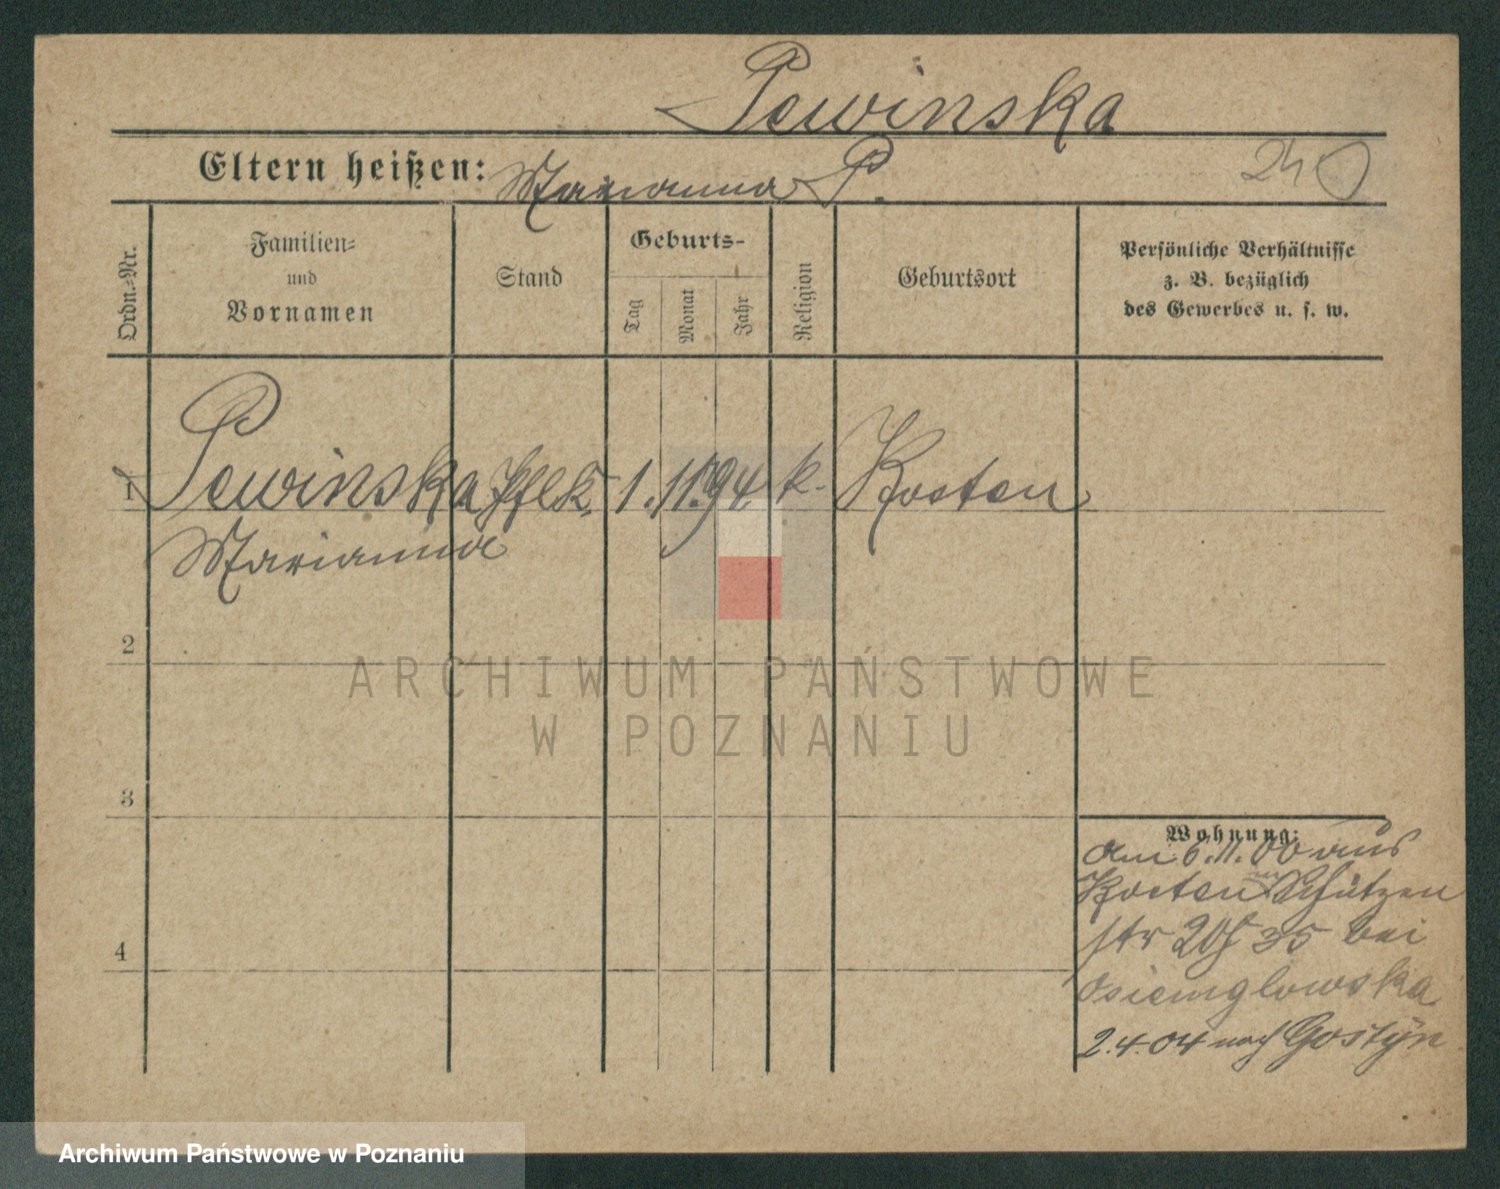 Pewinska
Eltern heißen: Marianna P.
Ordn.-Nr.
Familien-
und
Vornamen
Stand
Geburts-
Tag
Monat
Jahr
Religion
Geburtsort
Persönliche Verhältnisse
z. B. bezüglich
des Gewerbes u. s. w.
1 Pewinska Pflk. 1. 11. 94 k. Kosten
Marianna
2
3
4
Wohnung:
am 6.11.00 aus
Kosten Schützen
str 20 35 bei
Osiemglowska
2.4.04 nach Gostÿn
ARCHIWUM PAŃSTWOWE
W POZNANIU
Archiwum Państwowe w Poznaniu